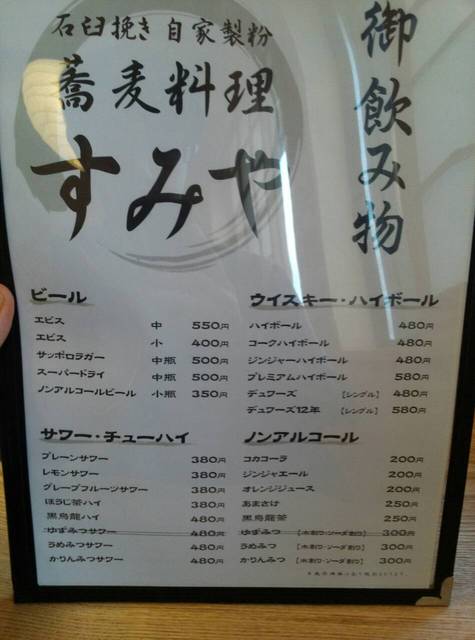 石臼挽き 自家製粉
蕎麦料理
すみや
御飲み物
ビール
エビス 中 550円
エビス 小 400円
サッポロラガー 中瓶 500円
スーパードライ 中瓶 500円
ノンアルコールビール 小瓶 350円
ウイスキー・ハイボール
ハイボール 480円
コークハイボール 480円
ジンジャーハイボール 480円
プレミアムハイボール 580円
デュワーズ 【シングル】 480円
デュワーズ12年 【シングル】 580円
サワー・チューハイ
プレーンサワー 380円
レモンサワー 380円
グレープフルーツサワー 380円
ほうじ茶ハイ 380円
黒烏龍ハイ 480円
ゆずみつサワー 480円
うめみつサワー 480円
かりんみつサワー 480円
ノンアルコール
コカコーラ 200円
ジンジャエール 200円
オレンジジュース 200円
あまさけ 250円
黒烏龍茶 250円
ゆずみつ 【水割り・ソーダ割り】 300円
うめみつ 【水割り・ソーダ割り】 300円
かりんみつ 【水割り・ソーダ割り】 300円